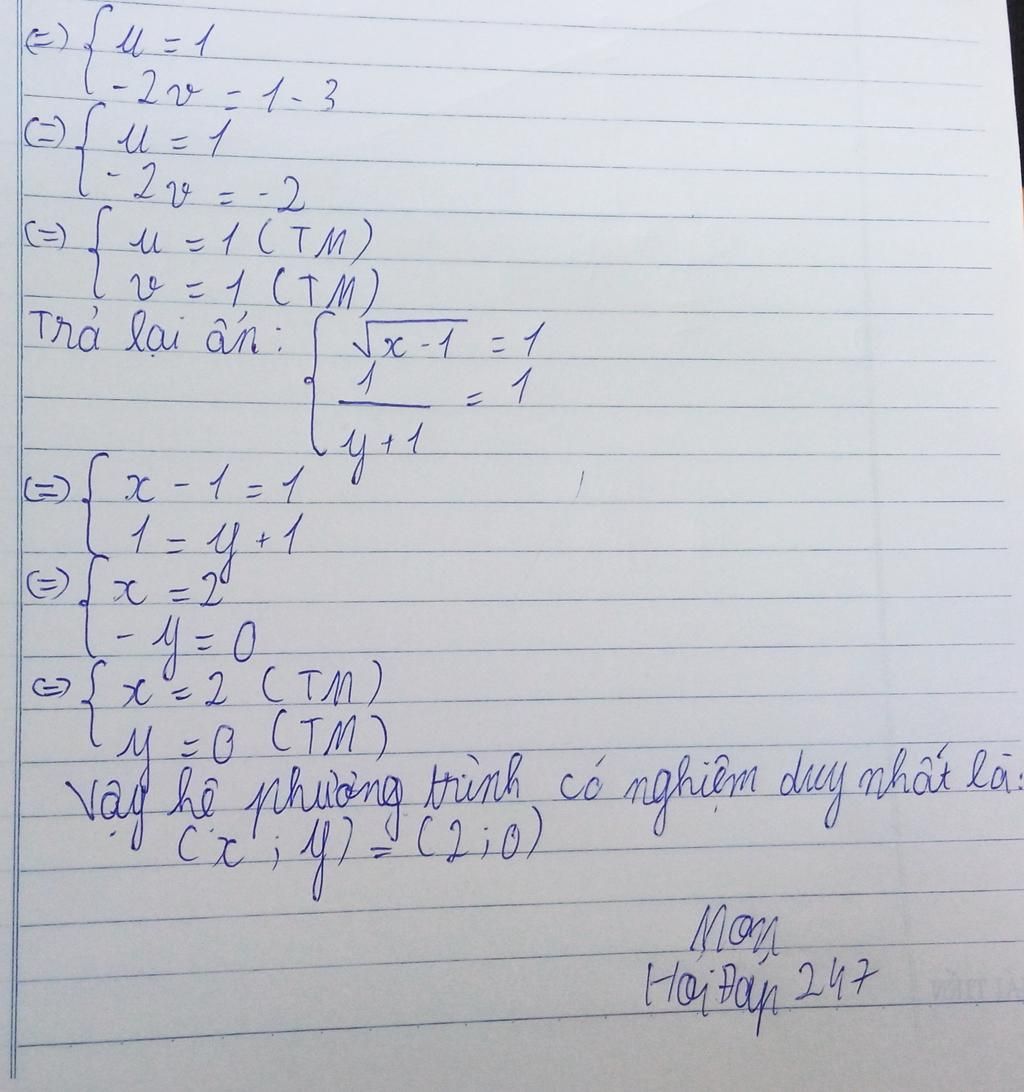 (=) { u = 1
- 2v = 1 - 3
(=) { u = 1
- 2v = - 2
(=) { u = 1 (TM)
v = 1 (TM)
Trả lại ẩn: { √x - 1 = 1
1/y + 1 = 1
(=) { x - 1 = 1
1 = y + 1
(=) { x = 2
- y = 0
(=) { x = 2 (TM)
y = 0 (TM)
Vậy hệ phương trình có nghiệm duy nhất là:
(x ; y) = (2 ; 0)
Mon
Hỏi Đáp 247